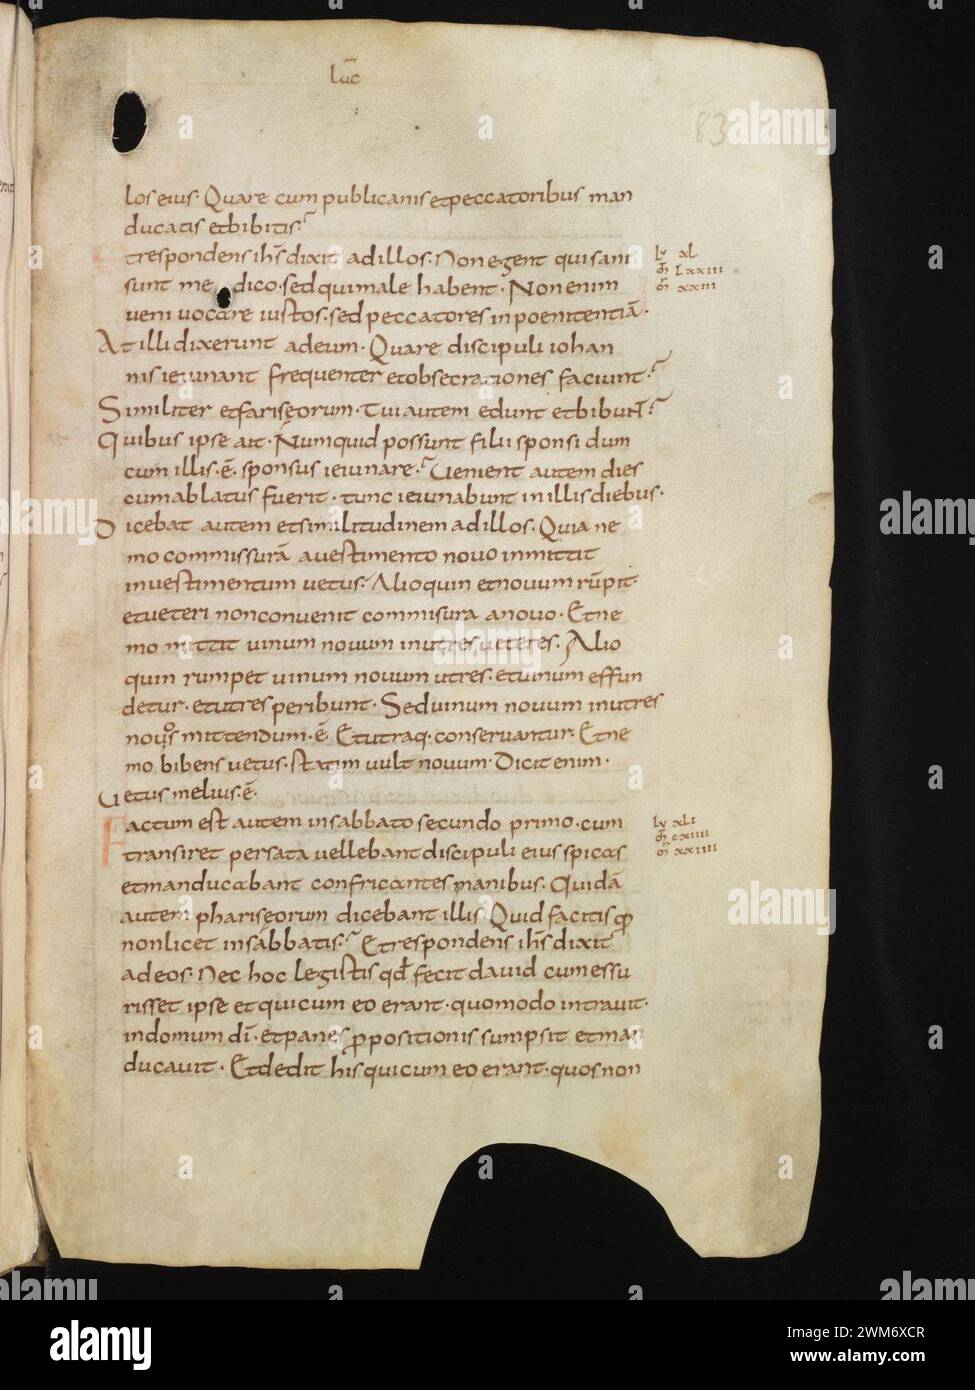 luc̄
83
los eius· Quare cum publicanis et peccatoribus man
ducatis et bibitis?
Et respondens ih̄s dixit ad illos. Non egent qui sani
sunt medico· sed qui male habent· Non enim
ueni uocare iustos· sed peccatores in poenitentiā·
At illi dixerunt ad eum· Quare discipuli iohan
nis ieiunant frequenter et obsecrationes faciunt?
Similiter et farisęorum· Tui autem edunt et bibunt?
Quibus ipse ait· Numquid possunt filii sponsi dum
cum illis· ē· sponsus ieiunare? Uenient autem dies
cum ablatus fuerit· tunc ieiunabunt in illis diebus·
Dicebat autem et similitudinem ad illos· Quia ne
mo commissurā a uestimento nouo inmittit
in uestimentum uetus· Alioquin et nouum rūpit·
et ueteri non conuenit commisura a nouo· Et ne
mo mittit uinum nouum in utres ueteres· Alio
quin rumpet uinum nouum utres· et uinum effun
detur· et utres peribunt· Sed uinum nouum in utres
nouos mittendum· ē· Et utraq· conseruantur· Et ne
mo bibens uetus· statim uult nouum· Dicit enim·
Uetus melius· ē·
Factum est autem in sabbato secundo primo· cum
transiret per sata uellebant discipuli eius spicas
et manducabant confricantes manibus· Quidā
autem pharisęorum dicebant illis· Quid facitis q̄
non licet in sabbatis? Et respondens ih̄s dixit
ad eos· Nec hoc legistis qđ fecit dauid cum esu
risset ipse et qui cum eo erant· quomodo intrauit·
in domum dī· et panes ꝓpositionis sumpsit et man
ducauit· Et dedit his qui cum eo erant· quos non
lv xl
m̄ lxxiii
m̄ xxiii
lv xli
m̄ cxiiii
m̄ xxiiii
alamy
Image ID: 2WM6XCR
www.alamy.com